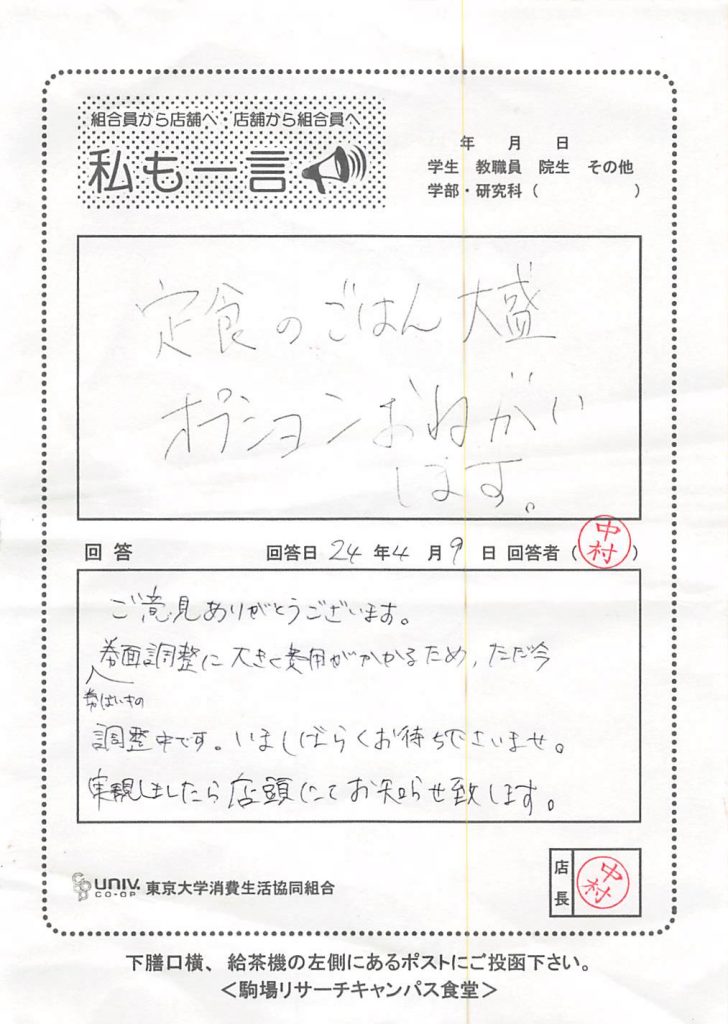 組合員から店舗へ・店舗から組合員へ
私も一言
年 月 日
学生 教職員 院生 その他
学部・研究科（ ）
定食のごはん大盛
オプションおねがい
します。
回答 回答日 24 年 4 月 9 日 回答者（中村）
ご意見ありがとうございます。
券面調整に大きく費用がかかるため、ただ今
券ばいきの
調整中です。いましばらくお待ち下さいませ。
実現しましたら店頭にてお知らせ致します。
店長 中村
UNIV. CO-OP 東京大学消費生活協同組合
下膳口横、給茶機の左側にあるポストにご投函下さい。
＜駒場リサーチキャンパス食堂＞